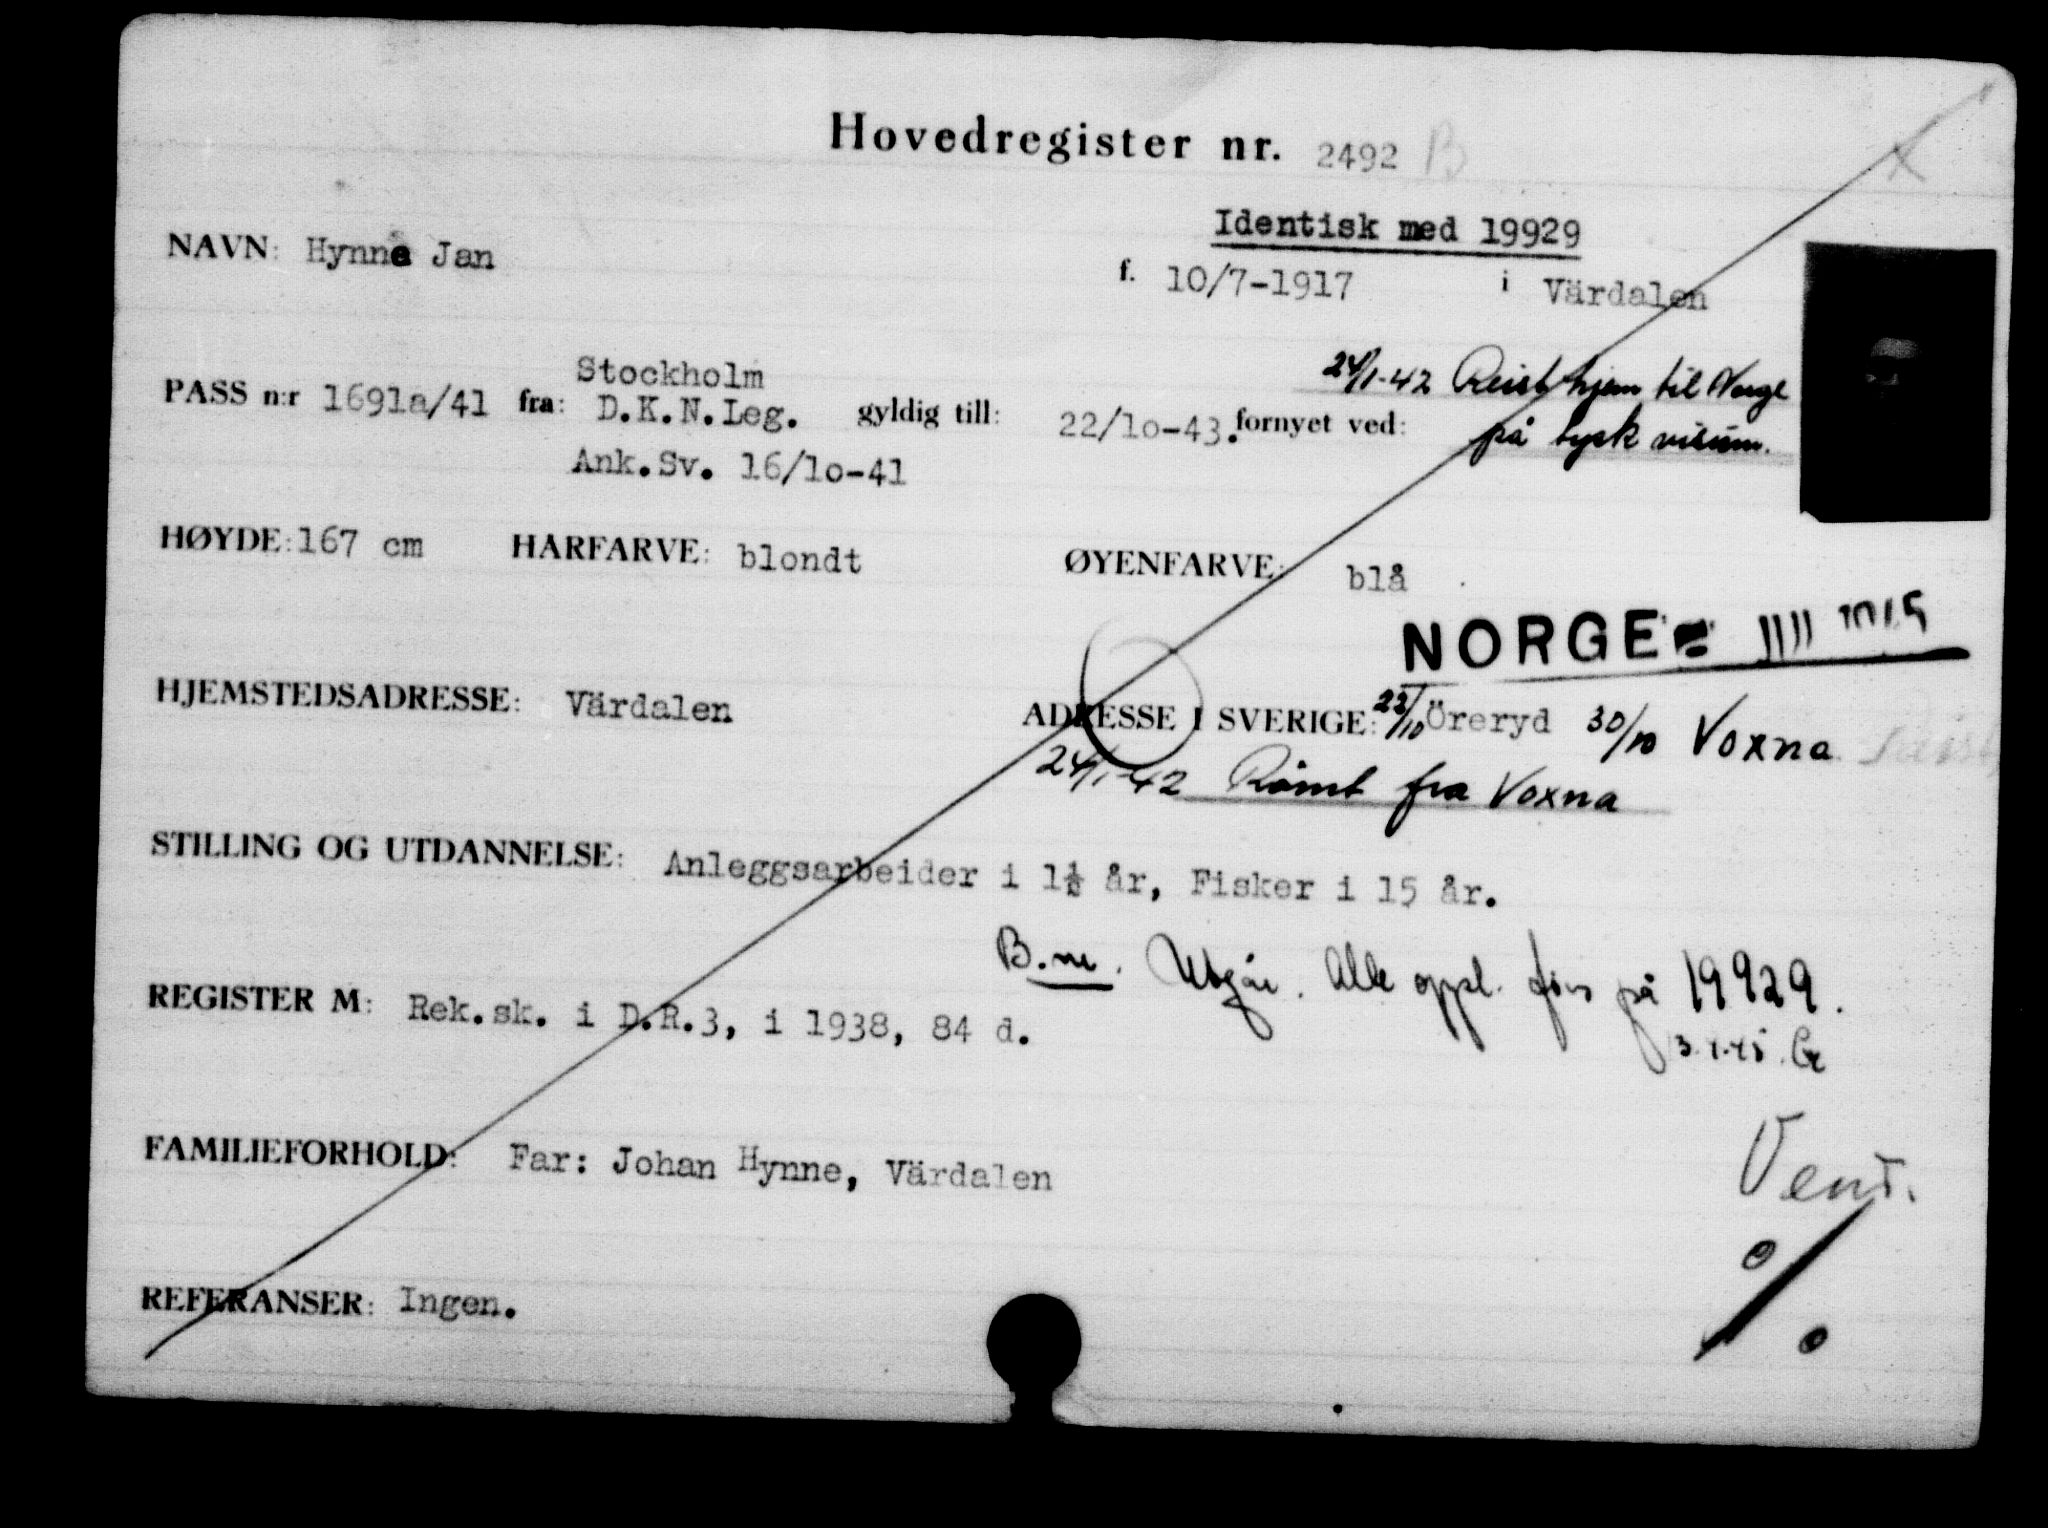 Hovedregister nr. 2492 B
Identisk med 19929
NAVN: Hynne Jan
f. 10/7-1917 i Värdalen
24/1-42 Reist hjem til Norge
på tysk visum.
Stockholm
PASS n:r 1691a/41 fra: D.K.N.Leg. gyldig till: 22/lo-43. fornyet ved:
Ank.Sv. 16/lo-41
HØYDE: 167 cm HARFARVE: blondt ØYENFARVE: blå
NORGE
HJEMSTEDSADRESSE: Värdalen ADRESSE I SVERIGE: 22/10 Öreryd 30/10 Voxna
24/1-42 Rømt fra Voxna
STILLING OG UTDANNELSE: Anleggsarbeider i 1½ år, Fisker i 15 år.
B.nr. Utgår. Alle oppl. føres på 19929.
REGISTER M: Rek.sk. i D.R.3, i 1938, 84 d.
FAMILIEFORHOLD: Far: Johan Hynne, Värdalen
Vent.
REFERANSER: Ingen.